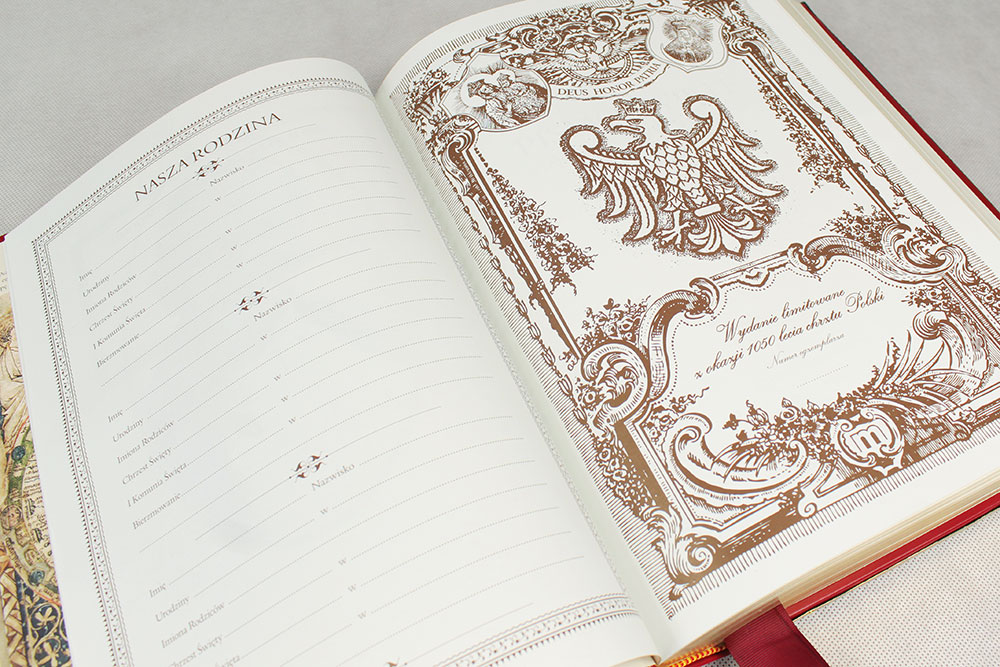 NASZA RODZINA
Nazwisko
w
Imię
w
Urodzony
w
Imiona Rodziców
Chrzest Święty
w
I Komunia Święta
Bierzmowanie
Nazwisko
w
Imię
w
Urodzony
Imiona Rodziców
w
Chrzest Święty
w
I Komunia Święta
Bierzmowanie
Nazwisko
w
Imię
w
Urodzony
Imiona Rodziców
w
Chrzest Święty
DEUS HONOR PATRIA
Wydanie limitowane
z okazji 1050 lecia chrztu Polski
Numer egzemplarza
m